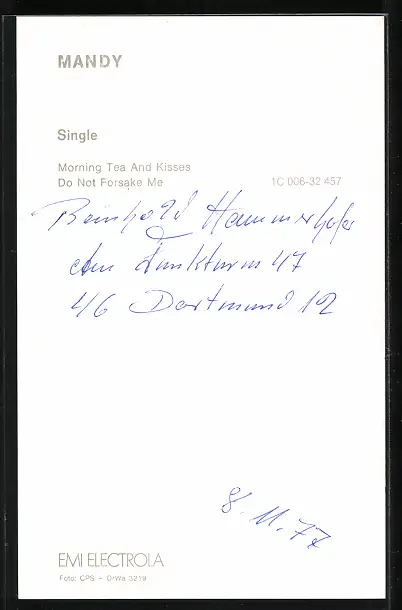 MANDY
Single
Morning Tea And Kisses
Do Not Forsake Me 1C 006-32 457
Reinhold Hammerhofer
Am Funkturm 47
46 Dortmund 12
8.11.77
EMI ELECTROLA
Foto: CPS - DrWa 3219